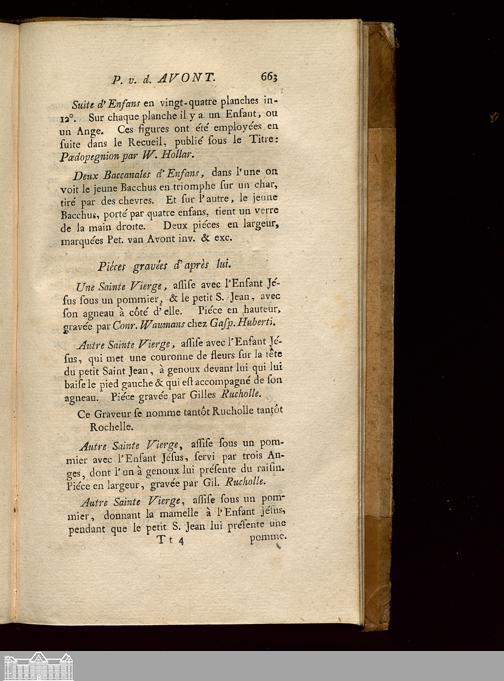 P. v. d. AVONT. 663
Suite d'Enfans en vingt-quatre planches in-
12°. Sur chaque planche il y a un Enfant, ou
un Ange. Ces figures ont été employées en
ſuite dans le Recueil, publié ſous le Titre:
Pædopegnion par W. Hollar.
Deux Baccanales d'Enfans, dans l'une on
voit le jeune Bacchus en triomphe ſur un char,
tiré par des chevres. Et ſur l'autre, le jeune
Bacchus, porté par quatre enfans, tient un verre
de la main droite. Deux piéces en largeur,
marquées Pet. van Avont inv. & exc.
Piéces gravées d'après lui.
Une Sainte Vierge, aſſiſe avec l'Enfant Jé-
ſus ſous un pommier, & le petit S. Jean, avec
ſon agneau à côté d'elle. Piéce en hauteur,
gravée par Conr. Waumans chez Gaſp. Huberti.
Autre Sainte Vierge, aſſiſe avec l'Enfant Jé-
ſus, qui met une couronne de fleurs ſur la tête
du petit Saint Jean, à genoux devant lui qui lui
baiſe le pied gauche & qui eſt accompagné de ſon
agneau. Piéce gravée par Gilles Rucholle.
Ce Graveur ſe nomme tantôt Rucholle tantôt
Rochelle.
Autre Sainte Vierge, aſſiſe ſous un pom-
mier avec l'Enfant Jéſus, ſervi par trois An-
ges, dont l'un à genoux lui préſente du raiſin.
Piéce en largeur, gravée par Gil. Rucholle.
Autre Sainte Vierge, aſſiſe ſous un pom-
mier, donnant la mamelle à l'Enfant jéſus,
pendant que le petit S. Jean lui préſente une
Tt 4 pomme.